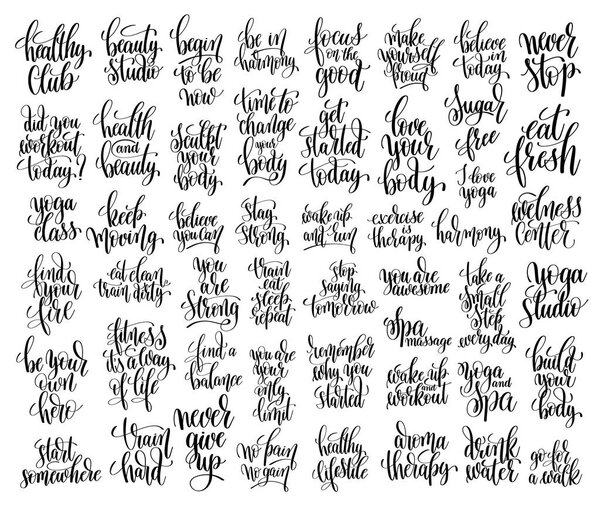 healthy
club
beauty
studio
begin
to be
now
be in
harmony
focus
on the
good
make
yourself
proud
believe
in
today
never
stop
did you
workout
today?
health
and
beauty
sculpt
your
body
time to
change
your
body
get
started
today
love
your
body
sugar
free
I love
yoga
eat
fresh
yoga
class
keep
moving
believe
you can
stay
strong
wake up
and run
exercise
is
therapy
harmony
welness
center
find
your
fire
eat clean
train dirty
you
are
strong
train
eat
sleep
repeat
stop
saying
tomorrow
you are
awesome
spa
massage
take a
small
step
everyday
yoga
studio
be your
own
hero
fitness
it's a way
of life
find a
balance
you are
your
only
limit
remember
why you
started
wake up
and
workout
yoga
and
spa
build
your
body
start
somewhere
train
hard
never
give
up
no pain
no gain
healthy
lifestile
aroma
therapy
drink
water
go for
a walk